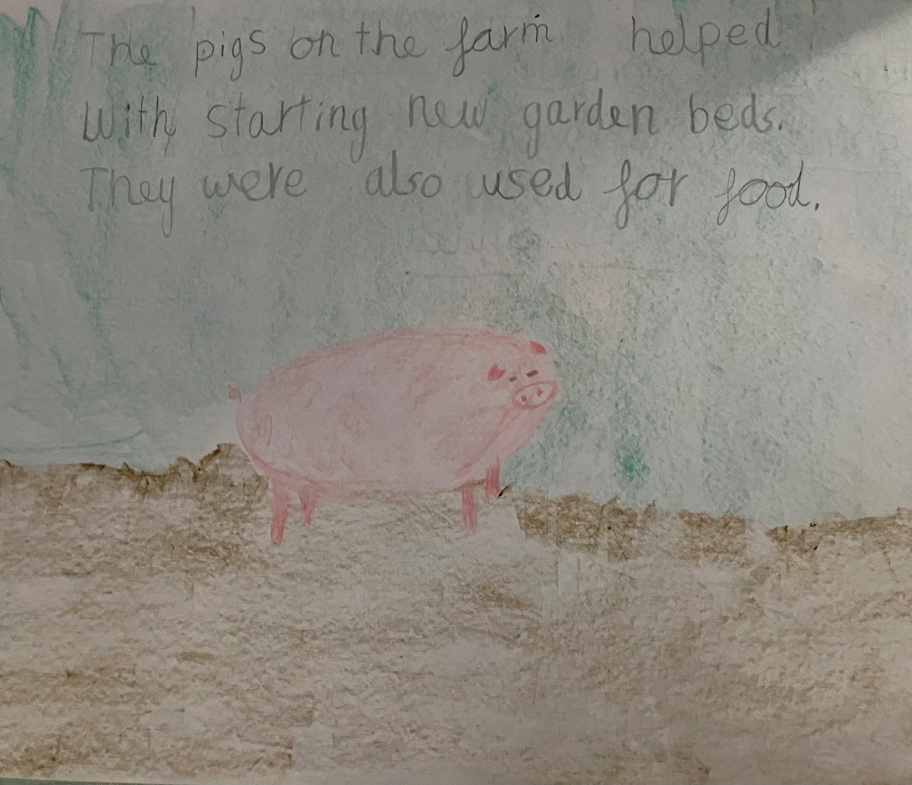 The pigs on the farm helped
with starting new garden beds.
They were also used for food.